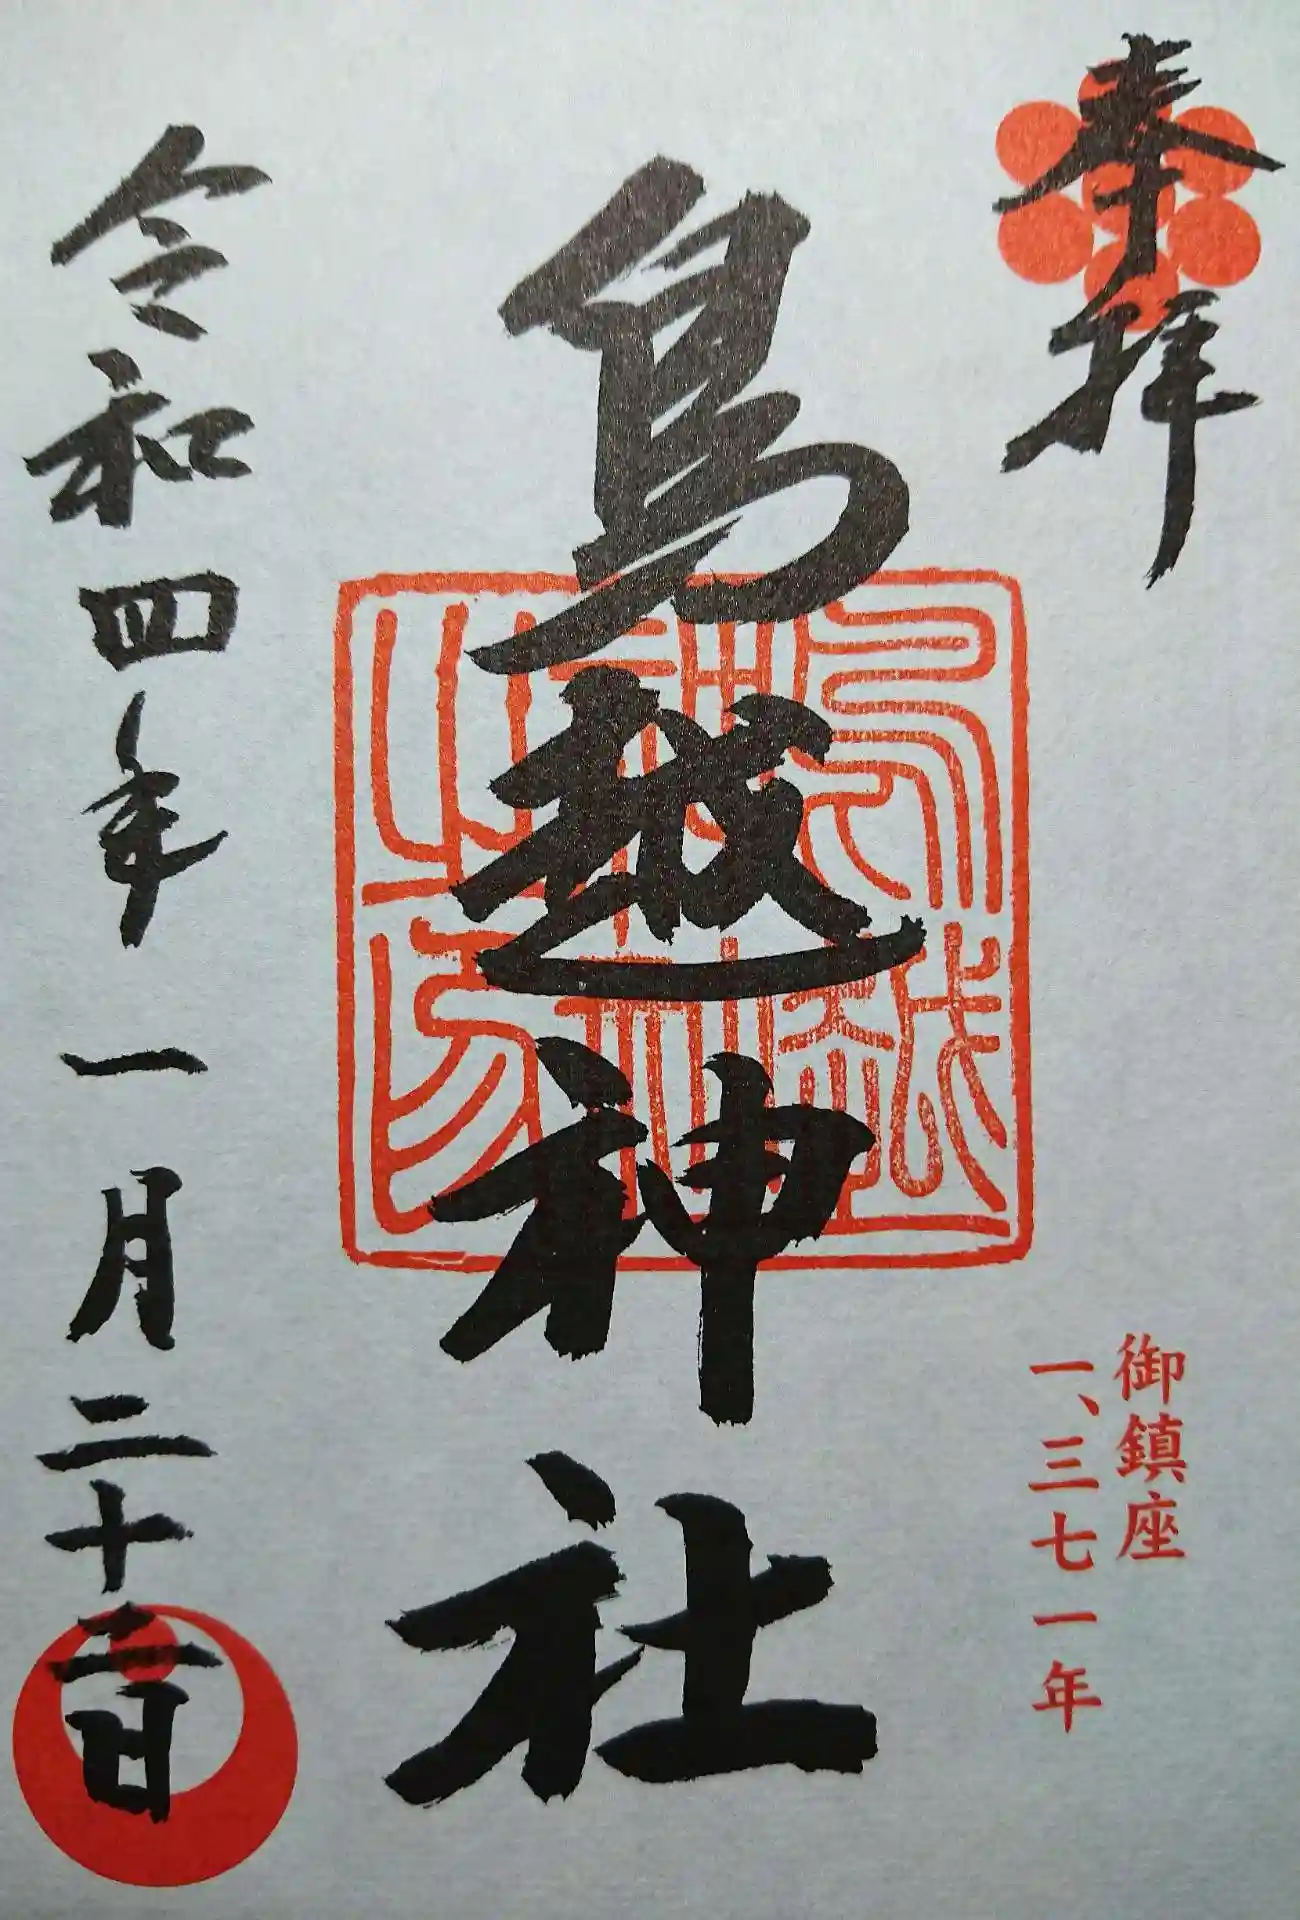 奉拝
御鎮座
一、三七一年
鳥越神社
鳥越神社之印
令和四年一月二十二日